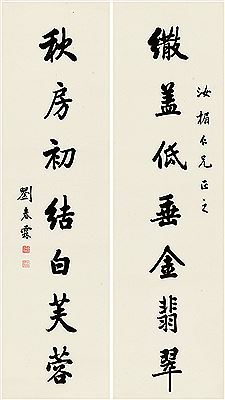 汝楣仁兄正之
繖盖低垂金翡翠
秋房初结白芙蓉
劉春霖